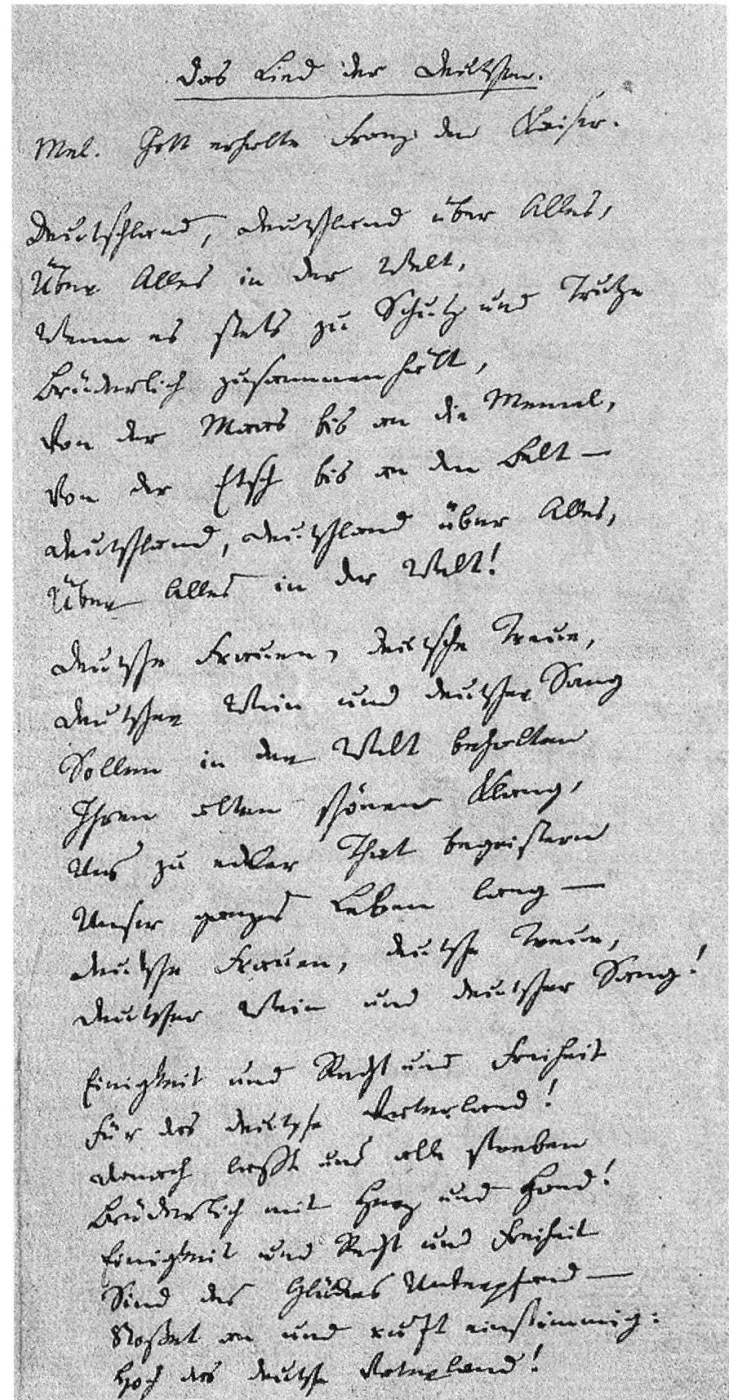 Das Lied der Deutschen.
Mel. Gott erhalte Franz den Kaiser.
Deutschland, Deutschland über Alles,
Über Alles in der Welt,
Wenn es stets zu Schutz und Trutze
Brüderlich zusammenhält,
Von der Maas bis an die Memel,
Von der Etsch bis an den Belt —
Deutschland, Deutschland über Alles,
Über Alles in der Welt!
Deutsche Frauen, deutsche Treue,
Deutscher Wein und deutscher Sang
Sollen in der Welt behalten
Ihren alten schönen Klang,
Uns zu edler That begeistern
Unser ganzes Leben lang —
Deutsche Frauen, deutsche Treue,
Deutscher Wein und deutscher Sang!
Einigkeit und Recht und Freiheit
Für das deutsche Vaterland!
Danach laßt uns alle streben
Brüderlich mit Herz und Hand!
Einigkeit und Recht und Freiheit
Sind des Glückes Unterpfand —
Stoßet an und ruft einstimmig:
Hoch das deutsche Vaterland!